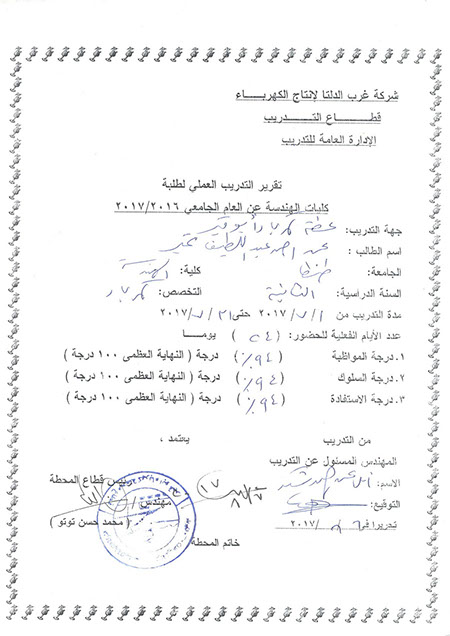 شركة غرب الدلتا لإنتاج الكهرباء
قطاع التدريب
الإدارة العامة للتدريب
تقرير التدريب العملي لطلبة
كليات الهندسة عن العام الجامعي ٢٠١٧/٢٠١٦
جهة التدريب: محطة كهرباء أبوقير
اسم الطالب: عبد اللطيف
الجامعة: طنطا كلية: الهندسة
السنة الدراسية: الثانية التخصص: كهرباء
مدة التدريب من ٧/١ /٢٠١٧ حتى ٧/٣١ /٢٠١٧
عدد الأيام الفعلية للحضور: ( ٢٤ ) يوما
١. درجة المواظبة (٩٤٪) درجة ( النهاية العظمى ١٠٠ درجة )
٢. درجة السلوك (٩٤٪) درجة ( النهاية العظمى ١٠٠ درجة )
٣. درجة الاستفادة (٩٤٪) درجة ( النهاية العظمى ١٠٠ درجة )
من التدريب يعتمد ،
المهندس المسئول عن التدريب رئيس قطاع المحطة
الاسم: مهندس /
التوقيع: ( محمد حسن توتو )
تحريرا في / /٢٠١٧
خاتم المحطة